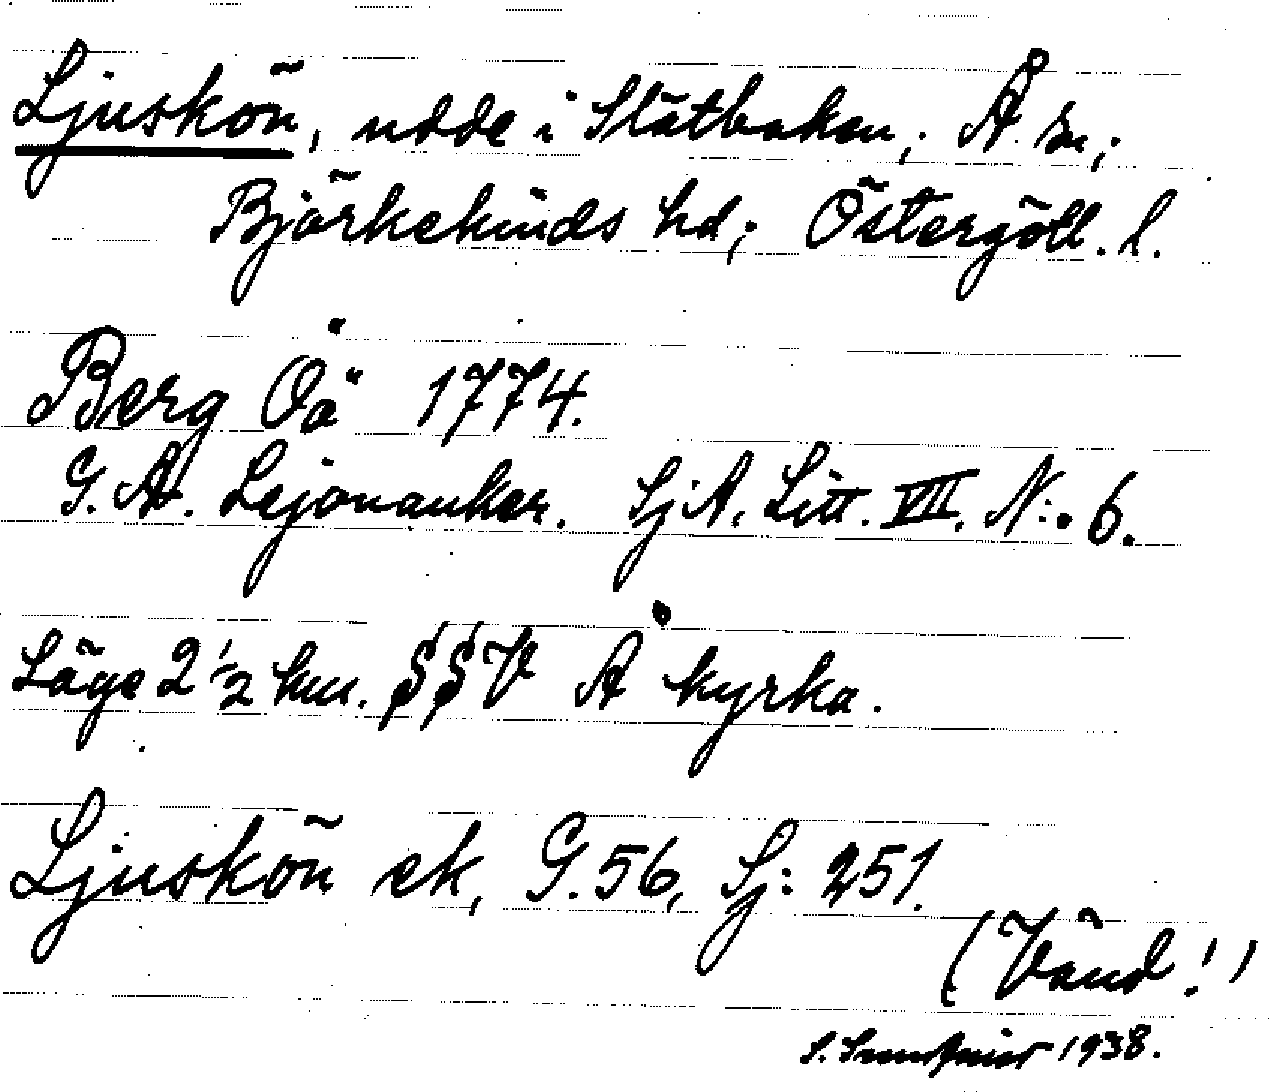 Ljuskön, udde i Slätbaken; Å sn;
Björkekinds hd; Östergötl. l.
Berg Öä 1774.
G. A. Lejonanker. SjA. Litt. VII. N:o 6.
Läge 2 1/2 km. SSV Å kyrka.
Ljuskön ek, G. 56, Sj: 251.
(Vänd!)
S. 1938.